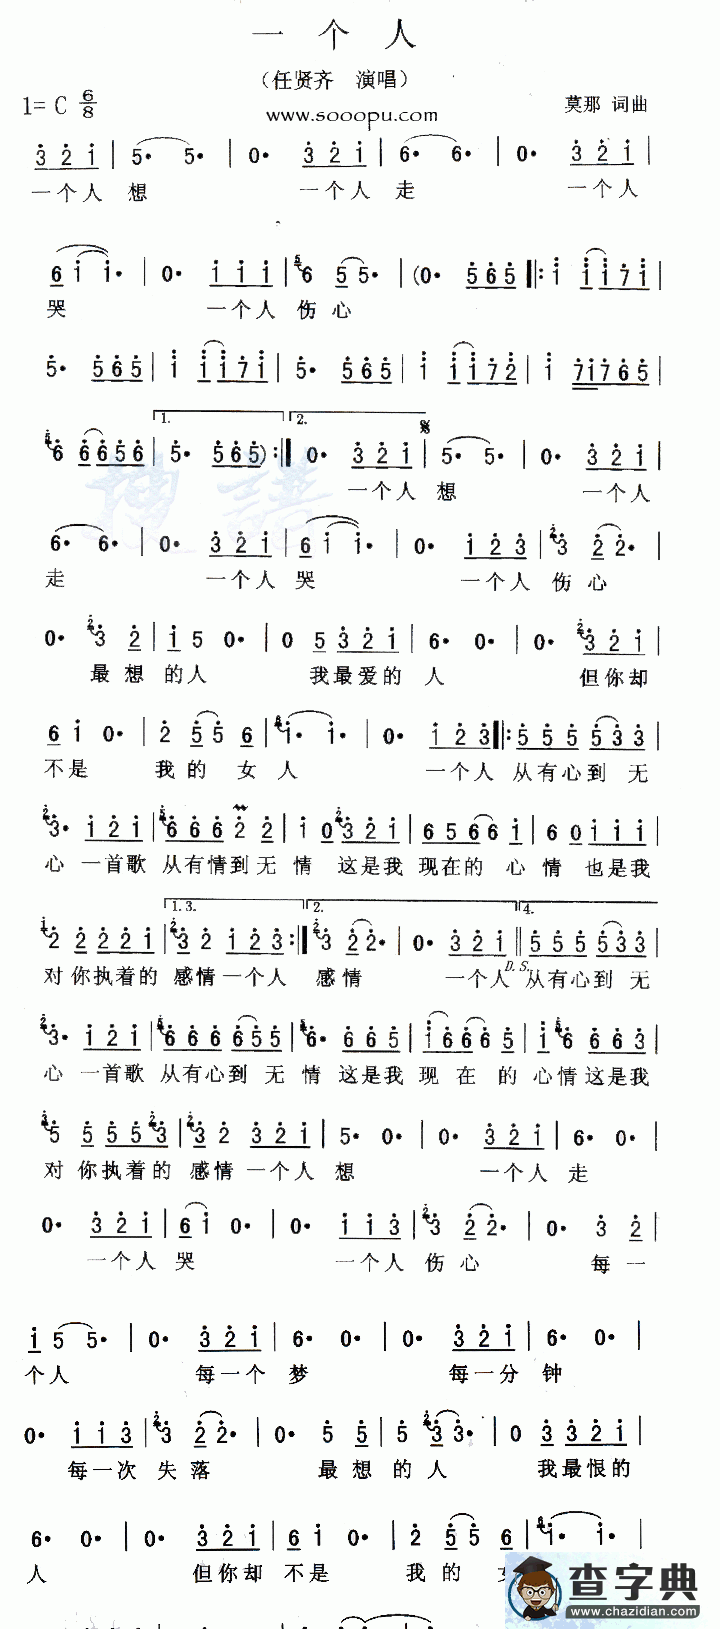 一 个 人
（任贤齐 演唱）
1= C 6/8
莫那 词曲
www.sooopu.com
3 2 1 | 5· 5· | 0· 3 2 1 | 6· 6· | 0· 3 2 1 |
一个人 想 一个人 走 一个人
6 1 1· | 0· 1 1 1 | 6 5 5· | (0· 5 6 5 ‖: 1 1 1 7 1 |
哭 一个人 伤 心
5· 5 6 5 | 1 1 1 7 1 | 5· 5 6 5 | 1 1 1 7 2 | 1 7 1 7 6 5 |
1. 2.
6 6 6 5 6 | 5· 5 6 5 ) :‖ 0· 3 2 1 | 5· 5· | 0· 3 2 1 |
一个人 想 一个人
6· 6· | 0· 3 2 1 | 6 1 1· | 0· 1 2 3 | 3 2 2· |
走 一个人 哭 一个人 伤心
0· 3 2 | 1 5 0· | 0 5 3 2 1 | 6· 0· | 0· 3 2 1 |
最 想 的人 我最爱的 人 但你却
6 1 0· | 2 5 5 6 | 1· 1· | 0· 1 2 3 ‖: 5 5 5 5 3 3 |
不是 我 的 女 人 一个人 从有心到 无
3· 1 2 1 | 6 6 6 2 2 | 1 0 3 2 1 | 6 5 6 6 1 | 6 0 1 1 1 |
心 一首歌 从有情到无 情 这是我 现在的 心 情 也是我
1.3. 2. 4.
2 2 2 2 1 | 3 2 1 2 3 :‖ 3 2 2· | 0· 3 2 1 ‖ 5 5 5 5 3 3 |
D.S.
对你执着的 感情一个人 感情 一个人 从有心到 无
3· 1 2 1 | 6 6 6 6 5 5 | 6· 6 6 5 | 1 6 6 6 5 | 1 6 6 6 3 |
心 一首歌 从有心到 无 情 这是我 现 在 的 心情这是我
5 5 5 5 3 | 3 2 3 2 1 | 5· 0· | 0· 3 2 1 | 6· 0· |
对 你执着的 感情一个人 想 一个人 走
0· 3 2 1 | 6 1 0· | 0· 1 1 3 | 3 2 2· | 0· 3 2 |
一个人 哭 一个人 伤 心 每一
1 5 5· | 0· 3 2 1 | 6· 0· | 0· 3 2 1 | 6· 0· |
个人 每一个 梦 每一分 钟
0· 1 1 3 | 3 2 2· | 0· 5 5 | 5 3 3· | 0 3 3 3 3 |
每一次 失落 最 想 的人 我最恨的
6· 0· | 0· 3 2 1 | 6 1 0· | 2 5 5 6 | 1· 1· |
人 但你却 不是 我 的
查字典
www.chazidian.com